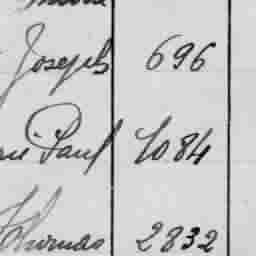 Joseph 696
Paul 1084
Thomas 2832